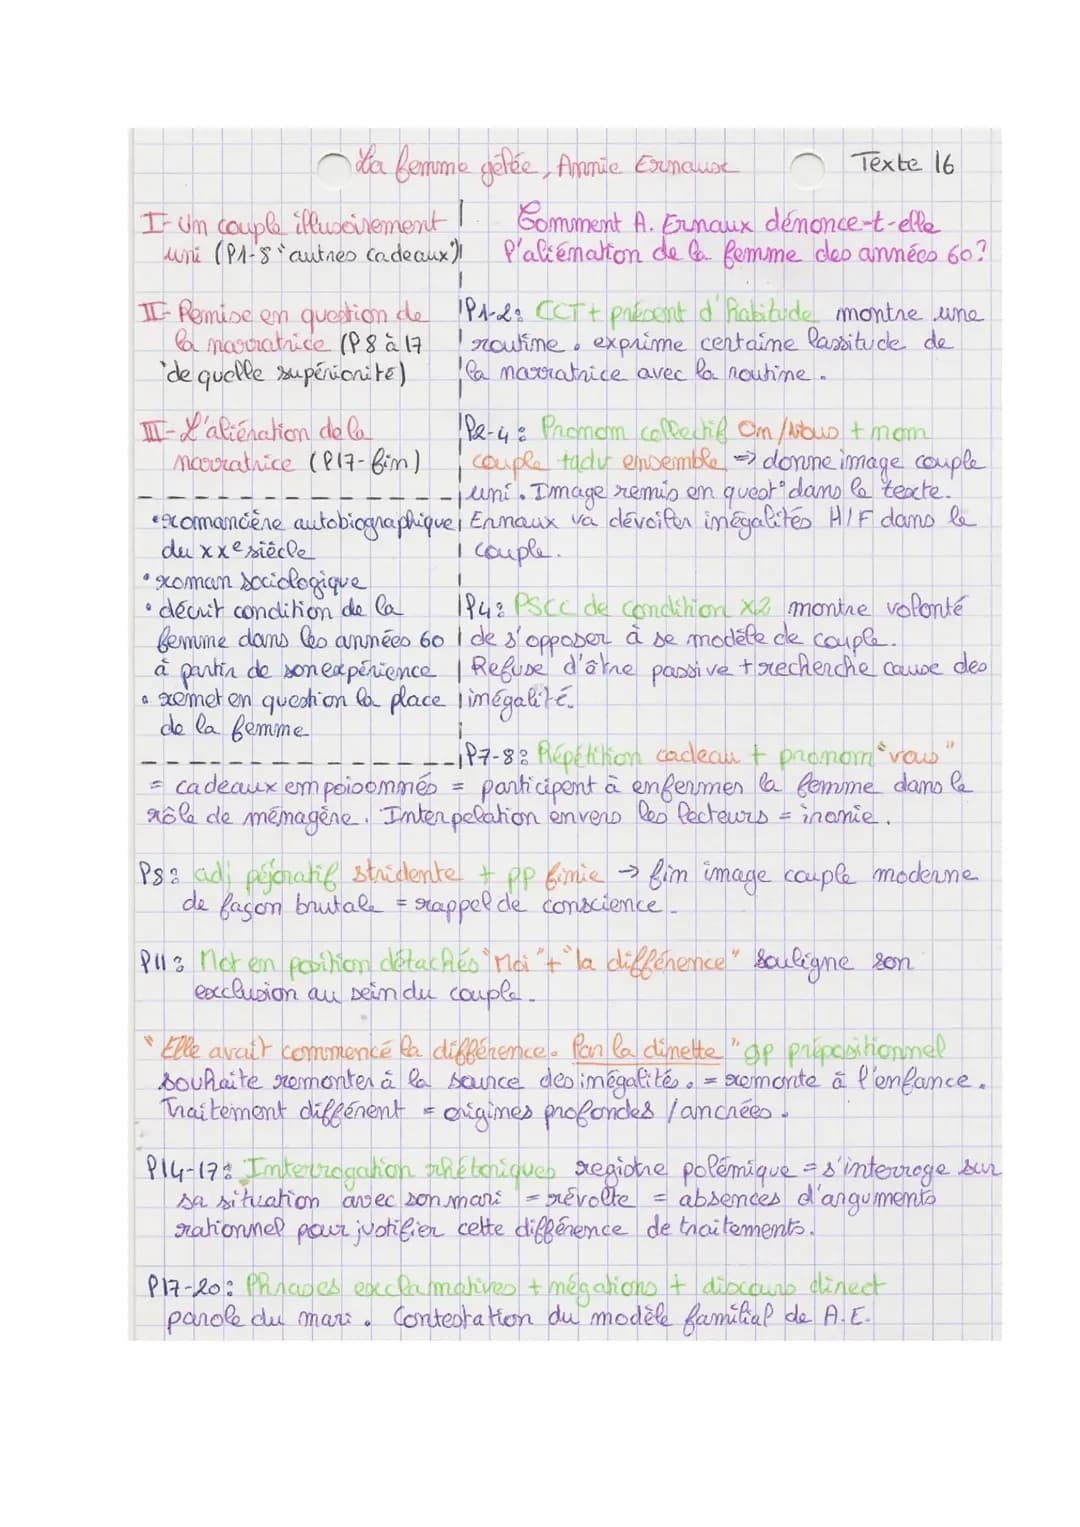 La femme gelée, Annie Ernaux
Texte 16
I- Un couple illusoirement
uni (l1-8 "autres cadeaux")
II- Remise en question de
la narratrice (l8 à 17
"de quelle supériorité)
III- L'aliénation de la
narratrice (l17-fin)
•romancière autobiographique
du XXe siècle
•roman sociologique
•décrit condition de la
femme dans les années 60
à partir de son expérience
•remet en question la place
de la femme
Comment A. Ernaux dénonce-t-elle
l'aliénation de la femme des années 60?
l1-2: CCT + présent d'habitude montre une
routine. exprime certaine lassitude de
la narratrice avec la routine.
l2-4: Pronom collectif On/Nous + nom
couple + adv ensemble => donne image couple
uni. Image remis en quest° dans le texte.
Ernaux va dévoiler inégalités H/F dans le
couple.
l4: PSCC de condition x2 montre volonté
de s'opposer à se modèle de couple.
Refuse d'être passive + recherche cause des
inégalité.
l7-8: Répétition cadeau + pronom "vous"
= cadeaux empoisonnés = participent à enfermer la femme dans le
rôle de ménagère. Interpelation envers les lecteurs = ironie.
l8: adj péjoratif stridente + pp finie → fin image couple moderne
de façon brutale = rappel de conscience.
l11: Mot en position détachés "Moi" + "la différence" souligne son
exclusion au sein du couple.
"Elle avait commencé la différence. Par la dinette" gp prépositionnel
souhaite remonter à la source des inégalités. = remonte à l'enfance.
Traitement différent = origines profondes / ancrées.
l14-17: Interrogation rhétoriques registre polémique = s'interroge sur
sa situation avec son mari = révolte = absences d'arguments
rationnel pour justifier cette différence de traitements.
l17-20: Phrases exclamatives + négations + discours direct
parole du mari. Contestation du modèle familial de A.E.